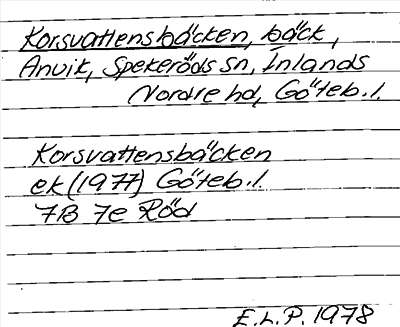 Korsvattensbäcken, bäck,
Anvik, Spekeröds sn, Inlands
Nordre hd, Göteb. l.
Korsvattensbäcken
ek (1977) Göteb. l.
7B 7e Röd
E.L.P. 1978